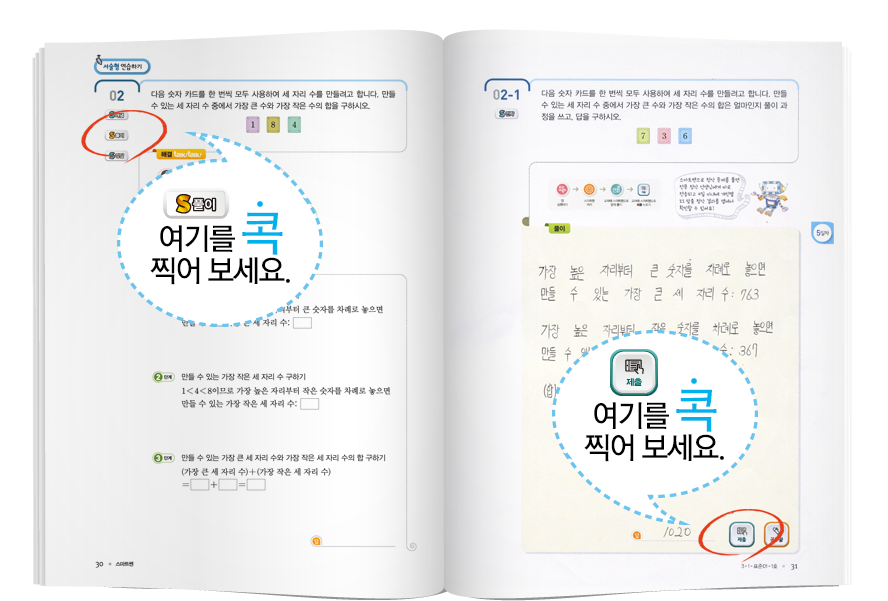 서술형 연습하기
02
다음 숫자 카드를 한 번씩 모두 사용하여 세 자리 수를 만들려고 합니다. 만들
수 있는 세 자리 수 중에서 가장 큰 수와 가장 작은 수의 합을 구하시오.
1 8 4
해결
S풀이
여기를 콕
찍어 보세요.
부터 큰 숫자를 차례로 놓으면
세 자리 수:
2 단계 만들 수 있는 가장 작은 세 자리 수 구하기
1<4<8이므로 가장 높은 자리부터 작은 숫자를 차례로 놓으면
만들 수 있는 가장 작은 세 자리 수:
3 단계 만들 수 있는 가장 큰 세 자리 수와 가장 작은 세 자리 수의 합 구하기
(가장 큰 세 자리 수)+(가장 작은 세 자리 수)
= + =
답
30 스마트펜
02-1
다음 숫자 카드를 한 번씩 모두 사용하여 세 자리 수를 만들려고 합니다. 만들
수 있는 세 자리 수 중에서 가장 큰 수와 가장 작은 수의 합은 얼마인지 풀이 과
정을 쓰고, 답을 구하시오.
7 3 6
5일차
풀이
가장 높은 자리부터 큰 숫자를 차례로 놓으면
만들 수 있는 가장 큰 세 자리 수: 763
가장 높은 자리부터 작은 숫자를 차례로 놓으면
만들 수 수: 367
(합)
제출
여기를 콕
찍어 보세요.
답 1020
제출
31